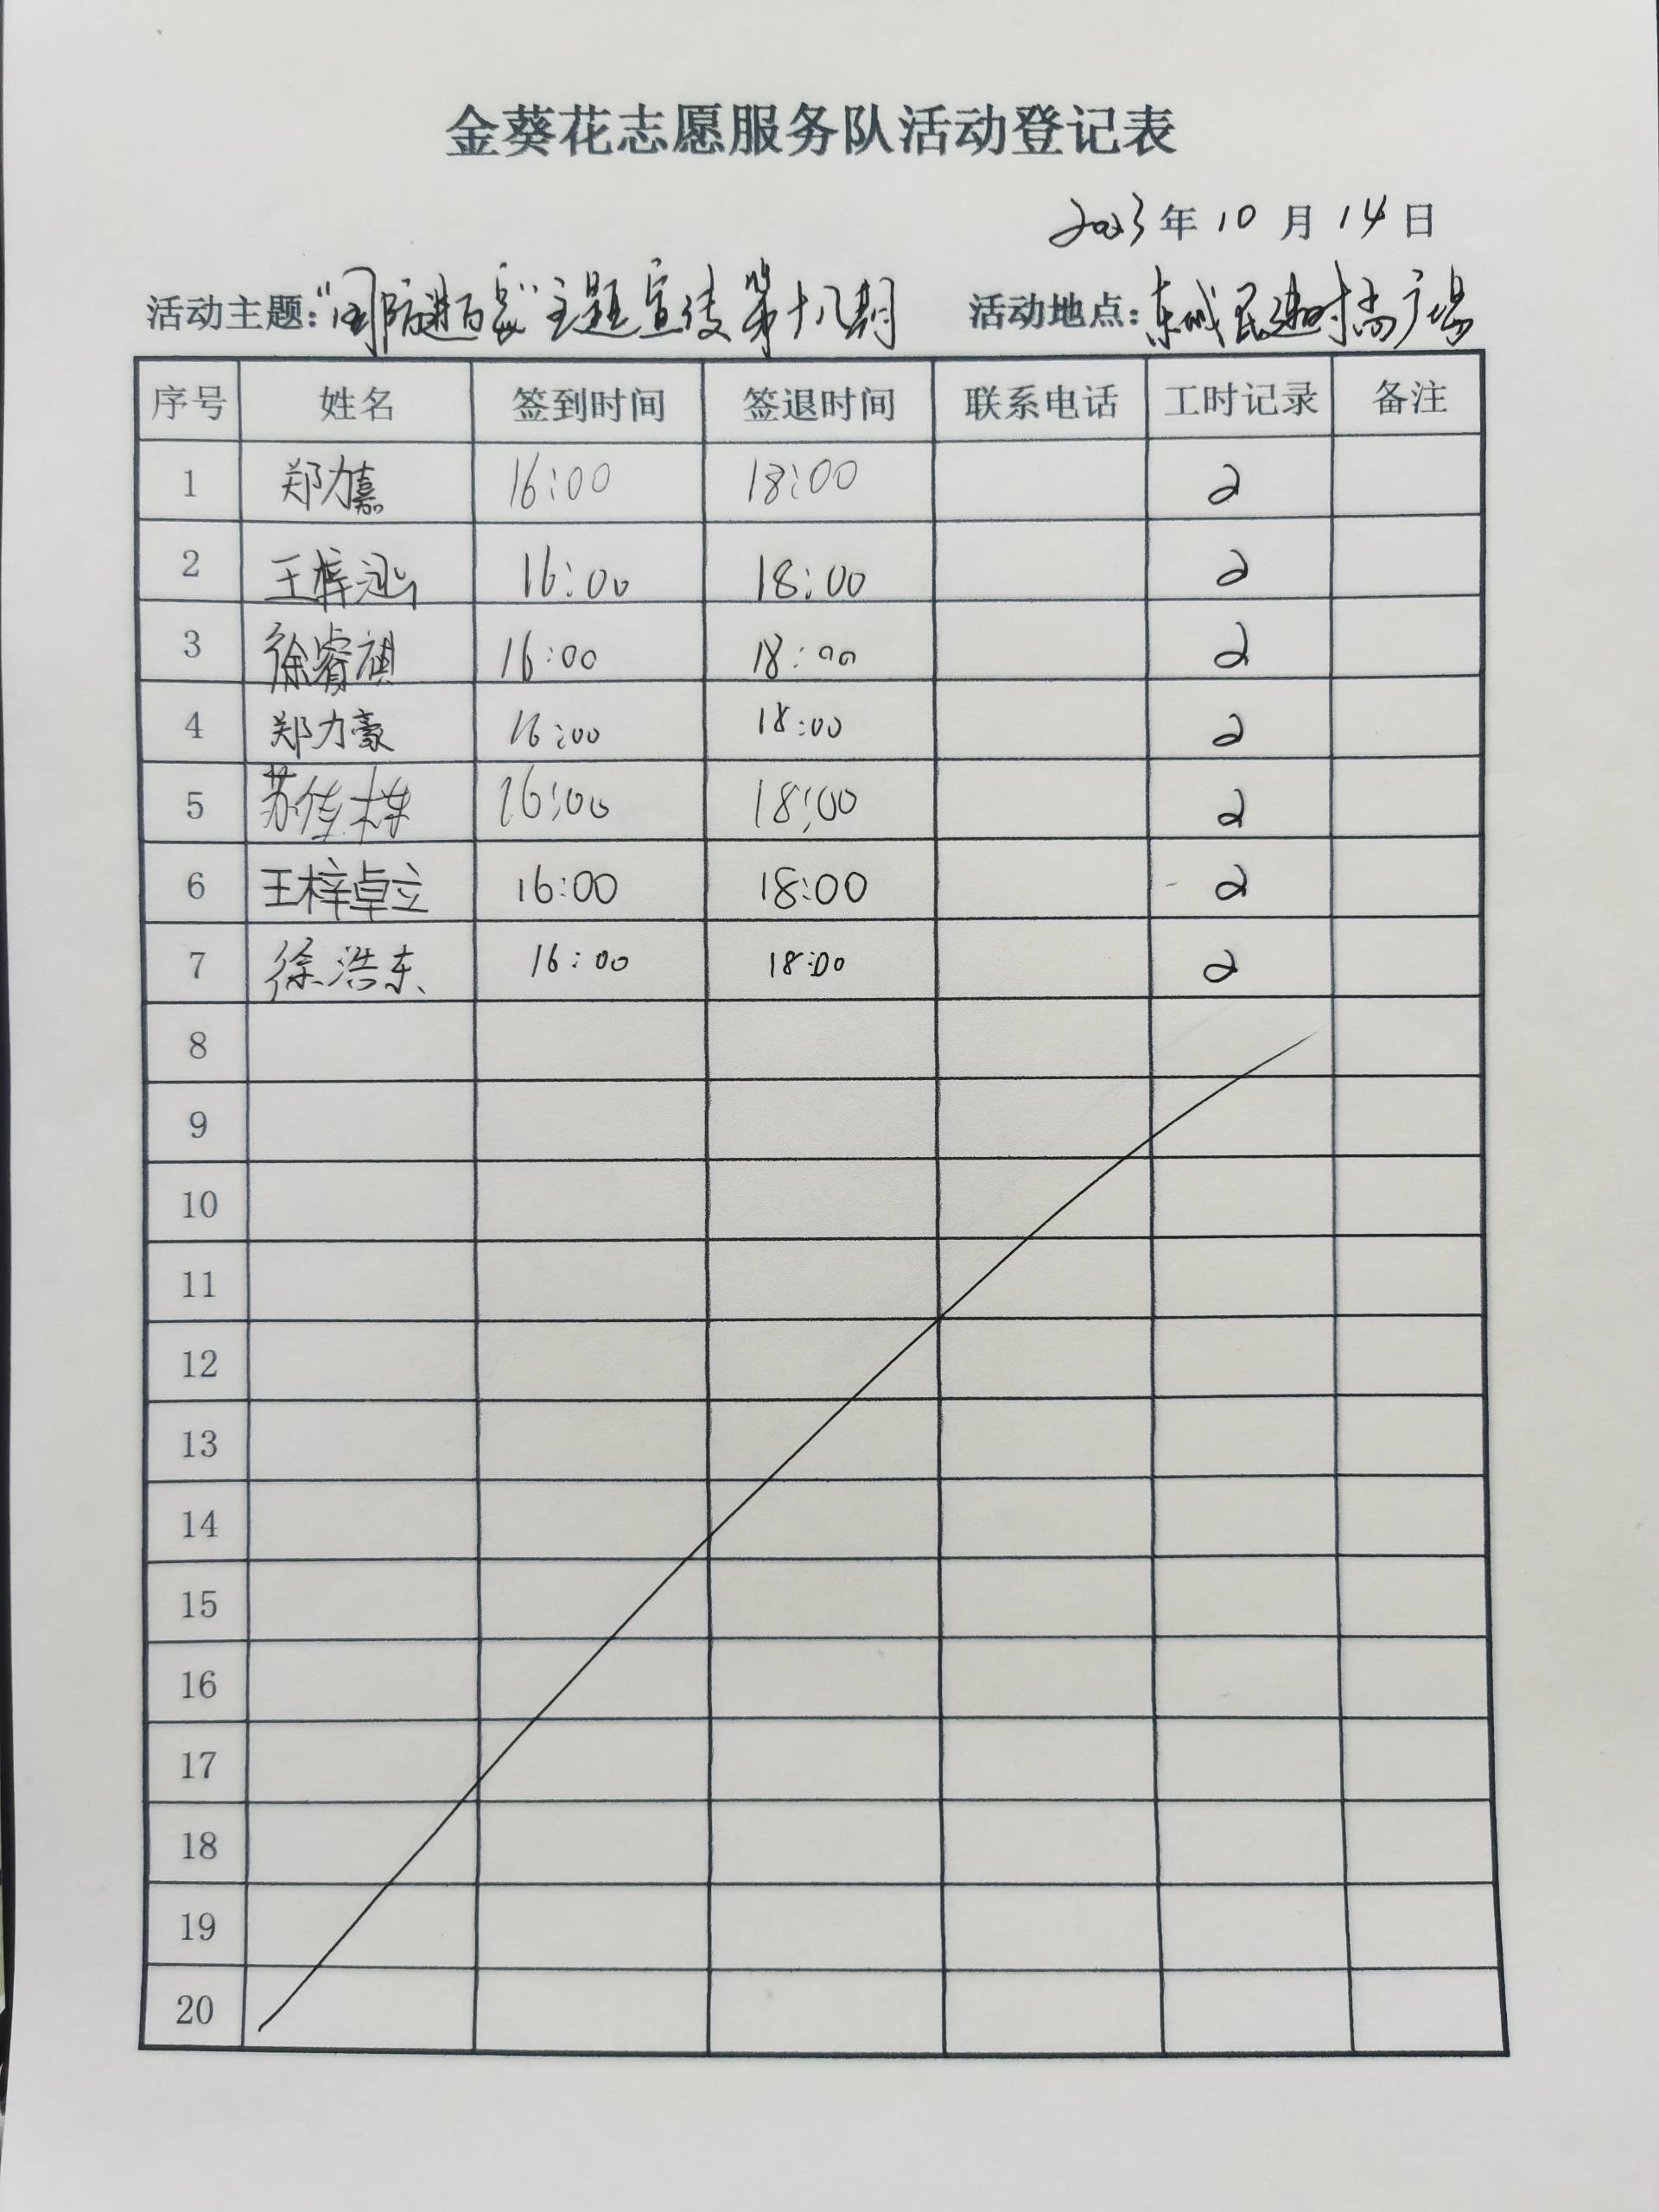 金葵花志愿服务队活动登记表
2023年10月14日
活动主题:“国防进百家”主题宣传第十八期 活动地点:东城民建时尚广场
序号 姓名 签到时间 签退时间 联系电话 工时记录 备注
1 郑力嘉 16:00 18:00 2
2 王梓涵 16:00 18:00 2
3 徐睿祺 16:00 18:00 2
4 郑力豪 16:00 18:00 2
5 苏佳栋 16:00 18:00 2
6 王梓卓立 16:00 18:00 2
7 徐浩东 16:00 18:00 2
8
9
10
11
12
13
14
15
16
17
18
19
20